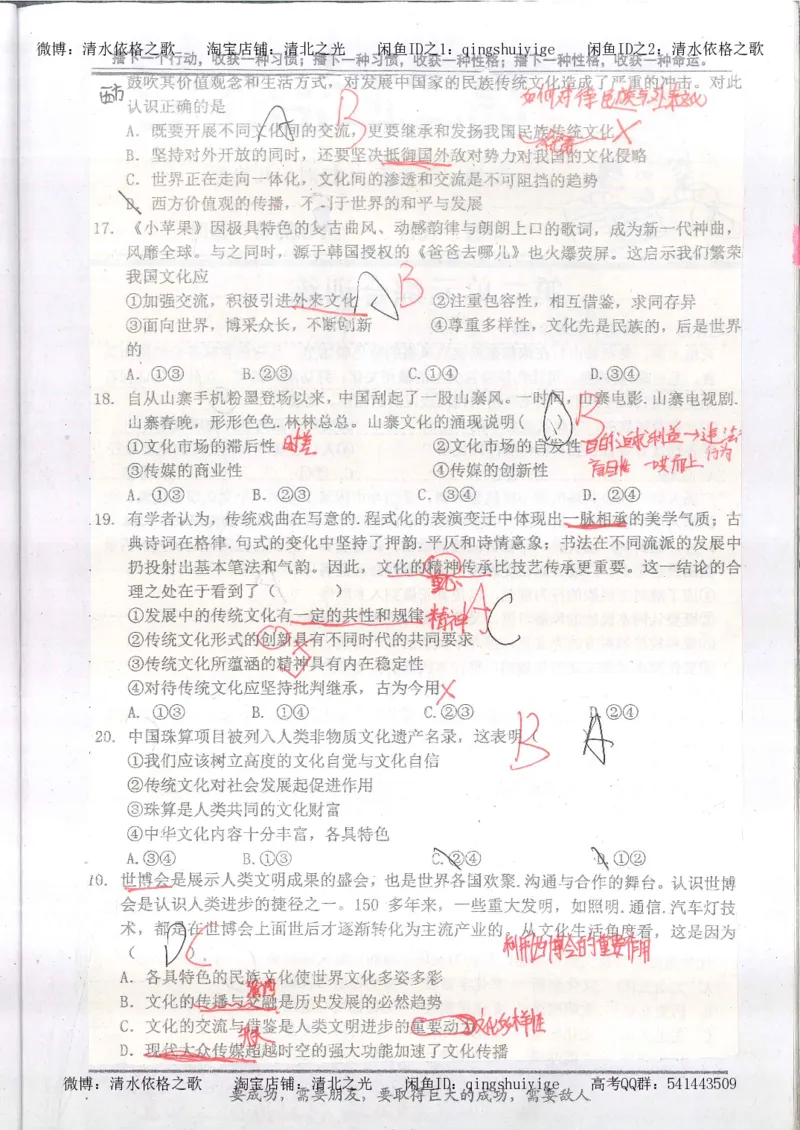 微博：清水依格之歌 淘宝店铺：清北之光 闲鱼ID之1：qingshuiyige 闲鱼ID之2：清水依格之歌
播下一个行动，收获一种习惯；播下一种习惯，收获一种性格；播下一种性格，收获一种命运。
鼓吹其价值观念和生活方式，对发展中国家的民族传统文化造成了严重的冲击。对此
西方
认识正确的是
A B
如何对待民族与外来文化
A．既要开展不同文化间的交流，更要继承和发扬我国民族传统文化
B．坚持对外开放的同时，还要坚决抵御国外敌对势力对我国的文化侵略
C．世界正在走向一体化，文化间的渗透和交流是不可阻挡的趋势
D．西方价值观的传播，不利于世界的和平与发展
17．《小苹果》因极具特色的复古曲风、动感韵律与朗朗上口的歌词，成为新一代神曲，
风靡全球。与之同时，源于韩国授权的《爸爸去哪儿》也火爆荧屏。这启示我们繁荣
我国文化应
A B
①加强交流，积极引进外来文化 ②注重包容性，相互借鉴，求同存异
③面向世界，博采众长，不断创新 ④尊重多样性，文化先是民族的，后是世界
的
A．①③ B.②③ C.①④ D.③④
18．自从山寨手机粉墨登场以来，中国刮起了一股山寨风。一时间，山寨电影.山寨电视剧.
山寨春晚，形形色色.林林总总。山寨文化的涌现说明( )
D B
①文化市场的滞后性 时差 ②文化市场的自发性 目的追求利益→违法行为
盲目性 一哄而上
③传媒的商业性 ④传媒的创新性
A．①③ B．②③ C．③④ D．②④
19．有学者认为，传统戏曲在写意的.程式化的表演变迁中体现出一脉相承的美学气质；古
典诗词在格律.句式的变化中坚持了押韵.平仄和诗情意象；书法在不同流派的发展中
扔投射出基本笔法和气韵。因此，文化的精神传承比技艺传承更重要。这一结论的合
理之处在于看到了（ ）
重心
A C
①发展中的传统文化有一定的共性和规律 精神
②传统文化形式的创新具有不同时代的共同要求
③传统文化所蕴涵的精神具有内在稳定性
④对待传统文化应坚持批判继承，古为今用
A．①③ B．①④ C.②③ D.②④
20．中国珠算项目被列入人类非物质文化遗产名录，这表明（ ）
B A
①我们应该树立高度的文化自觉与文化自信
②传统文化对社会发展起促进作用
③珠算是人类共同的文化财富
④中华文化内容十分丰富，各具特色
A.③④ B.①③ C.②④ D.①②
19．世博会是展示人类文明成果的盛会，也是世界各国欢聚.沟通与合作的舞台。认识世博
会是认识人类进步的捷径之一。150 多年来，一些重大发明，如照明.通信.汽车灯技
术，都是在世博会上面世后才逐渐转化为主流产业的。从文化生活角度看，这是因为
（
D C
A．各具特色的民族文化使世界文化多姿多彩
B．文化的传播与交融是历史发展的必然趋势
C．文化的交流与借鉴是人类文明进步的重要动力 文化多样性
D．现代大众传媒超越时空的强大功能加速了文化传播
微博：清水依格之歌 淘宝店铺：清北之光 闲鱼ID：qingshuiyige 高考QQ群：541443509
要成功，需要朋友，要取得巨大的成功，需要敌人